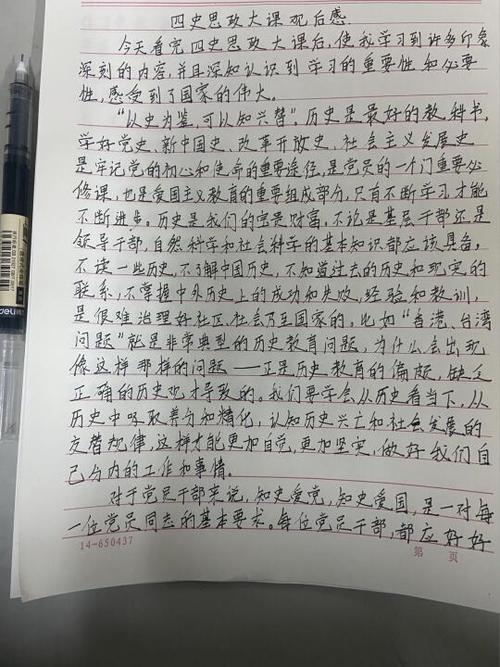 四史思政大课观后感.
今天看完四史思政大课后,使我学习到许多印象
深刻的内容,并且深知认识到学习的重要性和必要
性,感受到了国家的伟大。
“从史为鉴,可以知兴替”。历史是最好的教科书,
学好党史、新中国史、改革开放史、社会主义发展史
是牢记党的初心和使命的重要途径,是党员的一个门重要必
修课,也是爱国主义教育的重要组成部分,只有不断学习才能
不断进步。历史是我们的宝贵财富,不论是基层干部还是
领导干部,自然科学和社会科学的基本知识都应该具备,
不读一些历史,不了解中国历史,不知道过去的历史和现实的
联系,不掌握中外历史上的成功和失败,经验和教训,
是很难治理好社区、社会乃至国家的,比如“香港、台湾
问题”就是非常典型的历史教育问题,为什么会出现
像这样那样的问题——正是历史教育的偏颇,缺乏
正确的历史观才导致的。我们要学会从历史看当下,从
历史中吸取养分和精化,认知历史兴亡和社会发展的
交替规律,这样才能更加自觉,更加坚实,做好我们自
己分内的工作和事情。
对于党员干部来说,知史爱党,知史爱国,是一对每
一位党员同志的基本要求。每位党员干部,都应好好
14-650437
第 页
deli